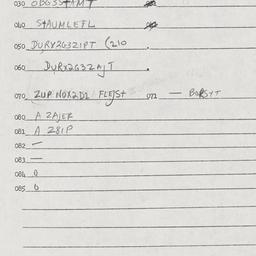 030 OBG3STAMT
040 STAUMLEFL
050 DURX2G3Z1PT (210
060 DURX2G3ZAJT
070 ZUP NOX2D1 FLEJST 072 —
080 A ZAJER
081 A Z81P
082 —
083 —
084 0
085 0